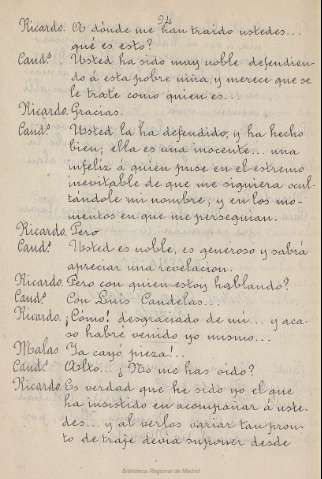 24
Ricardo. A dónde me han traido ustedes...
qué es esto?
Cand.s Usted ha sido muy noble defendien-
do á esta pobre niña, y merece que se
le trate como quien es...
Ricardo. Gracias.
Cand.s Usted la ha defendido, y ha hecho
bien; ella es una inocente... una
infeliz á quien puse en el estremo
inevitable de que me siguiera ocul-
tándole mi nombre, y en los mo-
mentos en que me perseguian.
Ricardo. Pero
Cand.s Usted es noble, es generoso y sabrá
apreciar una revelacion.
Ricardo Pero con quien estoy hablando?
Cand.s Con Luis Candelas...
Ricardo. ¡Cómo! desgraciado de mi... y aca-
so habré venido yo mismo...
Malas Ya cayó pieza!..
Cand.s ¿No me has oido?
Ricardo. Es verdad que he sido yo el que
ha insistido en acompañar á uste-
des... y al verlos variar tan pron-
to de traje debia suponer desde
Biblioteca Regional de Madrid